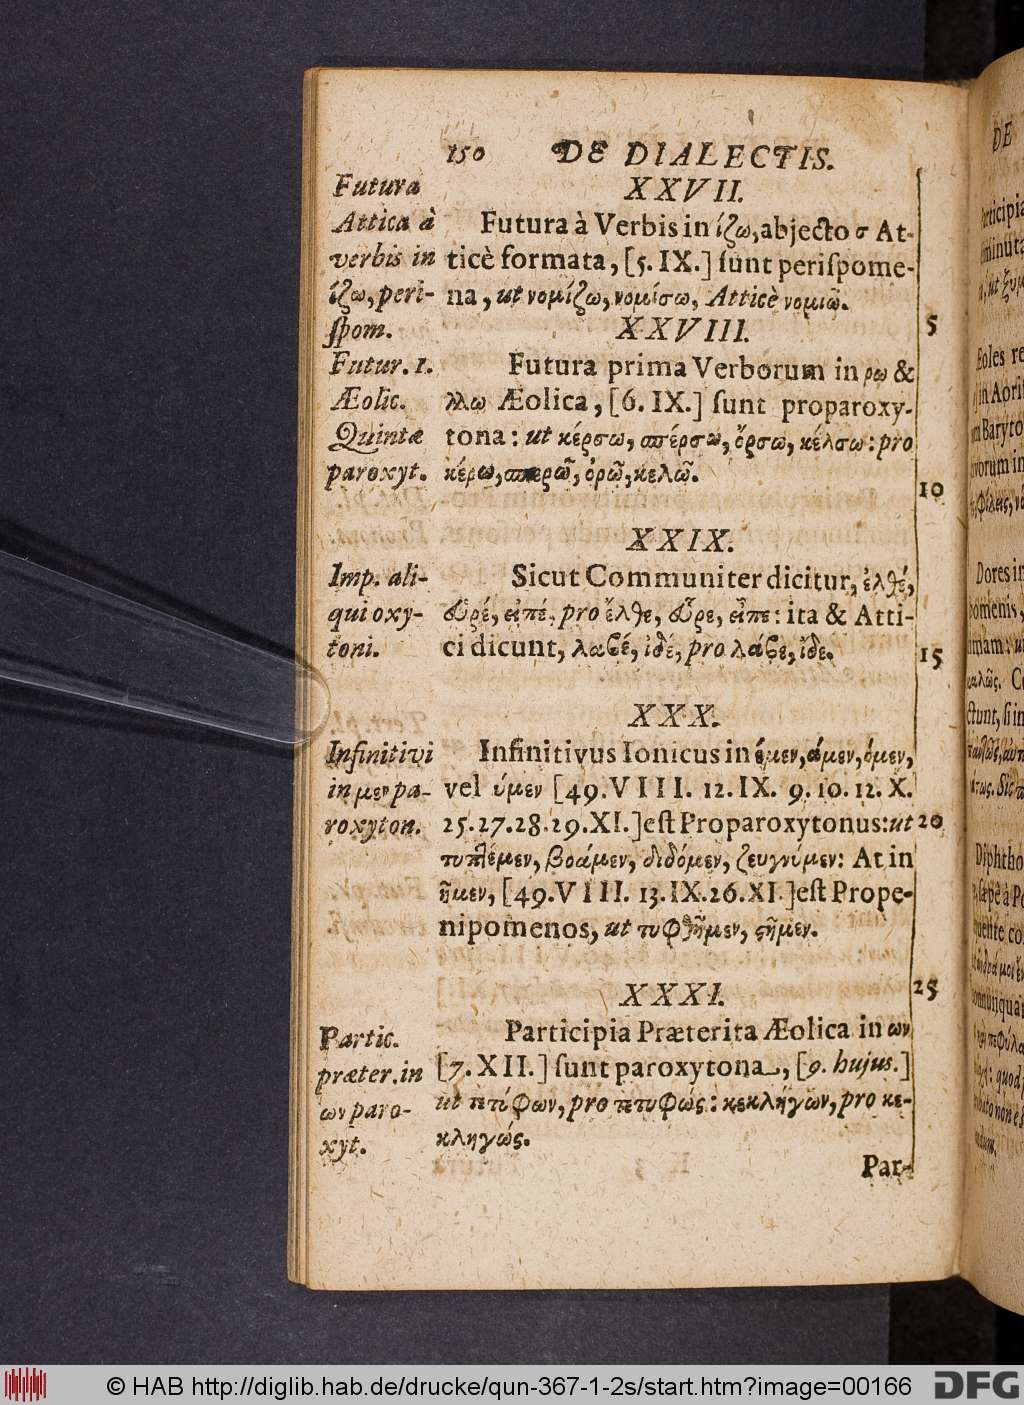 150 DE DIALECTIS.
XXVII.
Futura
Attica à
verbis in
ίζω, peri-
ſpom.
Futura à Verbis in ίζω, abjecto σ At-
ticè formata, [5. IX.] ſunt periſpome-
na, ut νομίζω, νομίσω, Atticè νομιῶ.
XXVIII.
5
Futur. 1.
Æolic.
Quintæ
paroxyt.
Futura prima Verborum in ρω &
λλω Æolica, [6. IX.] ſunt proparoxy-
tona: ut κέρσω, σπέρσω, ὄρσω, κέλσω: pro
κέρω, σπερῶ, ὀρῶ, κελῶ.
10
XXIX.
Imp. ali-
qui oxy-
toni.
Sicut Communiter dicitur, ἐλθέ,
εὑρέ, εἰπέ, pro ἔλθε, εὗρε, εἶπε: ita & Atti-
ci dicunt, λαβέ, ἰδέ, pro λάβε, ἴδε.
15
XXX.
Infinitivi
in μεν pa-
roxyton.
Infinitivus Ionicus in έμεν, άμεν, όμεν,
vel ύμεν [49. VIII. 12. IX. 9. 10. 12. X.
25. 27. 28. 29. XI.] eſt Proparoxytonus: ut
20
τυπτέμεν, βοάμεν, διδόμεν, ζευγνύμεν: At in
ῆμεν, [49. VIII. 13. IX. 26. XI.] eſt Prope-
nipomenos, ut τυφθῆμεν, ϛῆμεν.
XXXI.
25
Partic.
præter. in
ων paro-
xyt.
Participia Præterita Æolica in ων
[7. XII.] ſunt paroxytona, [9. hujus.]
ut τετύφων, pro τετυφώς: κεκλήγων, pro κε-
κληγώς.
Par-
DE
Eoles re
in Aori
Baryto
Dores in
Diphtho
© HAB http://diglib.hab.de/drucke/qun-367-1-2s/start.htm?image=00166
DFG